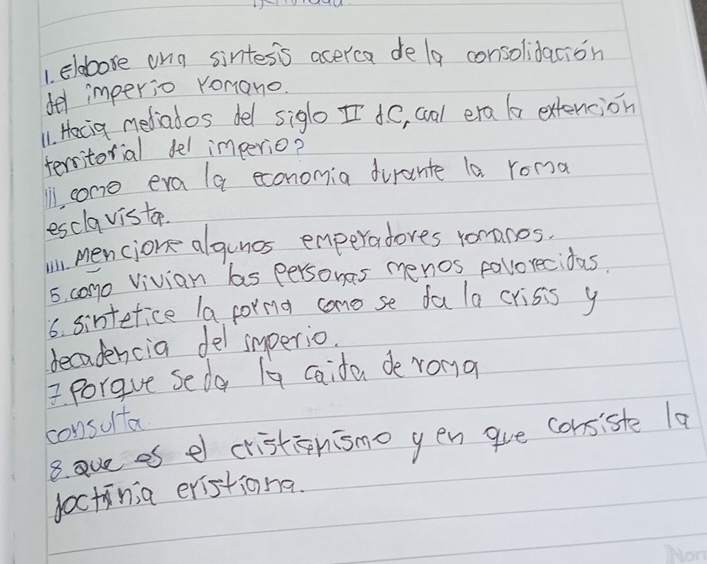 1. Elabore una sintesis acerca de la consolidación
del imperio romano.
11. Hacia mediados del siglo II dC, cual era la extención
territorial del imperio?
111. como era la economia durante la roma
esclavista.
1111. Mencione algunos emperadores romanos.
5. como vivian las personas menos favorecidas.
6. sintetice la forma como se da la crisis y
decadencia del imperio.
7. Porque se da la caida de roma
consulta
8. Que es el cristianismo y en que consiste la
doctrinia cristiana.
Nor